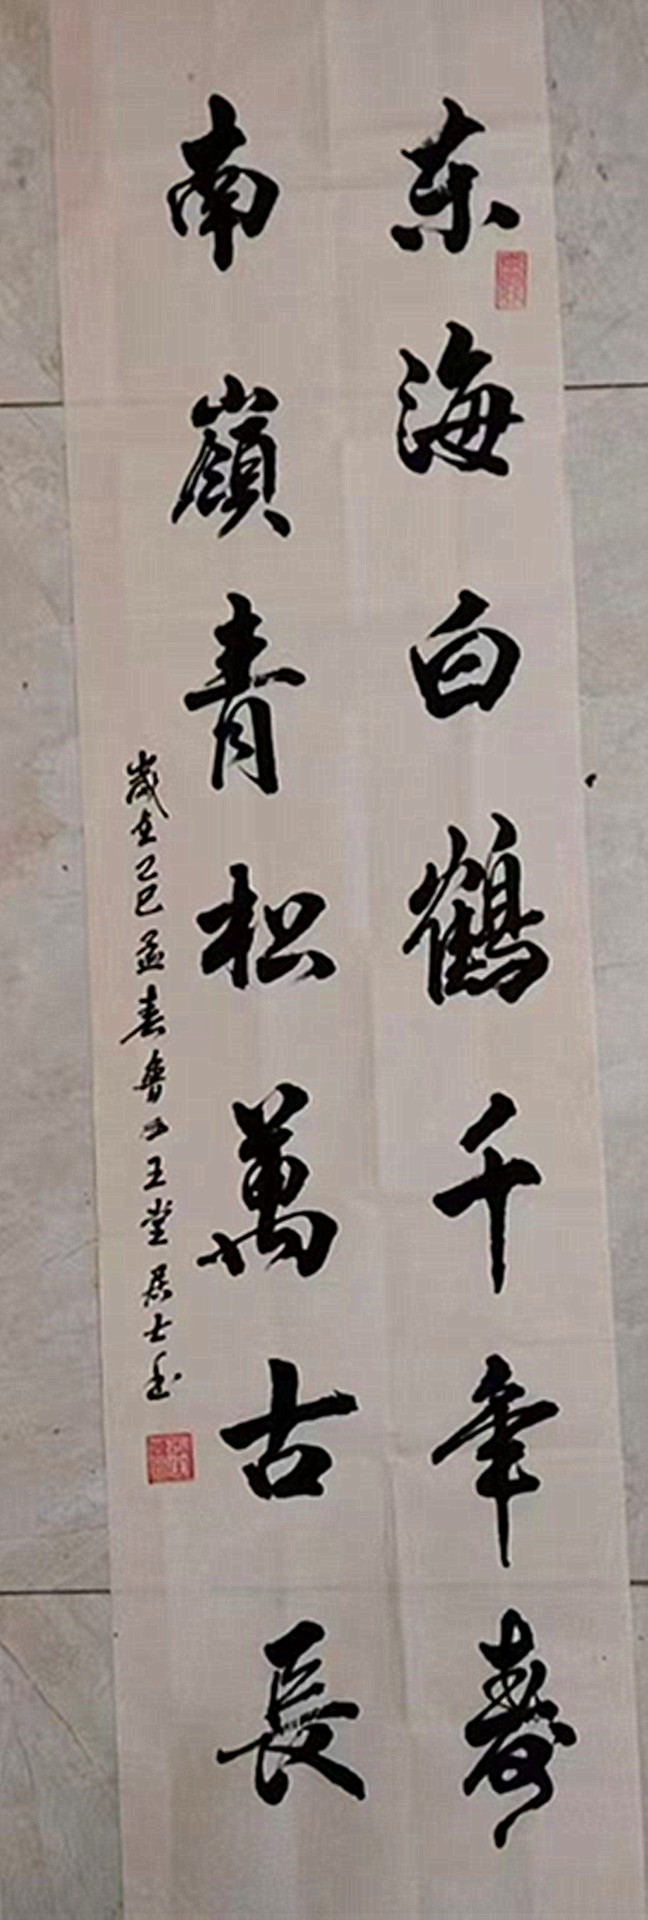 东海白鹤千年寿
南嶺青松萬古長
歲在乙巳孟春魯 王堂居士書